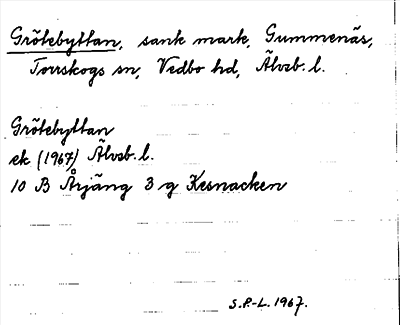 Grötebyttan, sank mark, Gummenäs,
Torrskogs sn, Vedbo hd, Älvsb. l.
Grötebyttan
ek (1967) Älvsb. l.
10 B Årjäng 3 g Kesnacken
S.P.-L. 1967.